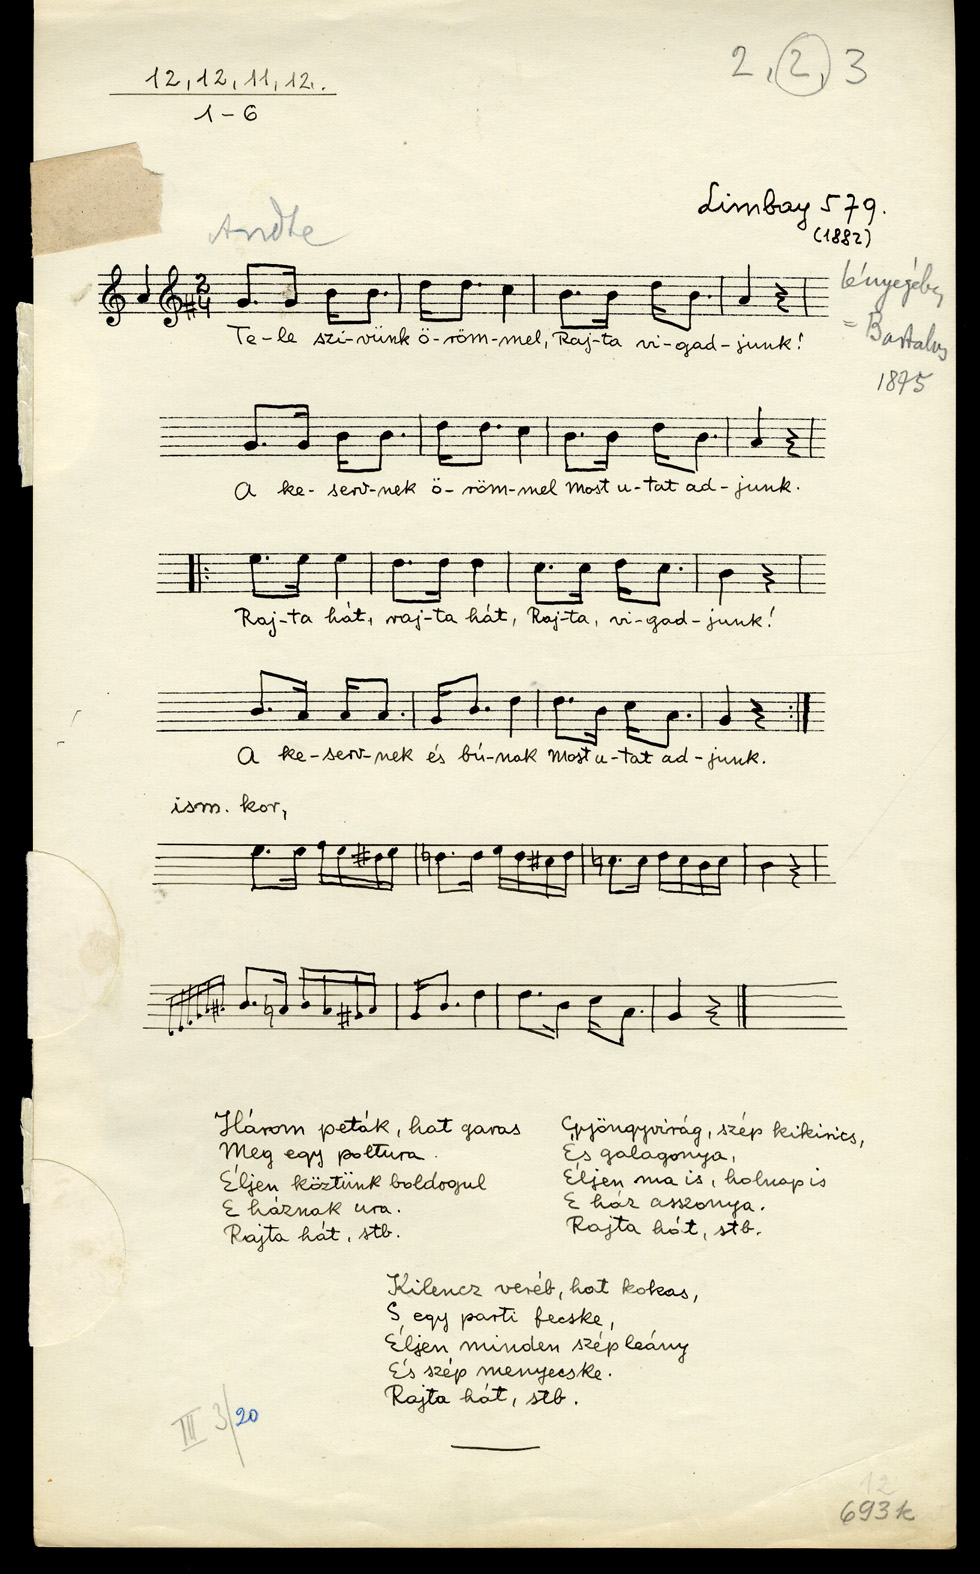 12, 12, 11, 12.
1 - 6
2, 2, 3
Limbay 579.
(1882)
Andte
lényegébe,
= Bartalus
1875
Te - le szí - vünk ö - röm - mel, Raj - ta vi - gad - junk!
A ke - serv - nek ö - röm - mel Most u - tat ad - junk.
Raj - ta hát, raj - ta hát, Raj - ta, vi - gad - junk!
A ke - serv - nek és bú - nak Most u - tat ad - junk.
ism. kor,
Három peták, hat garas
Meg egy poltura.
Éljen köztünk boldogul
E háznak ura.
Rajta hát, stb.
Gyöngyvirág, szép kikirics,
És galagonya,
Éljen ma is, holnap is
E ház asszonya.
Rajta hát, stb.
Kilencz veréb, hat kokas,
S egy parti fecske,
Éljen minden szép leány
És szép menyecske.
Rajta hát, stb.
III 3/20
12
693k